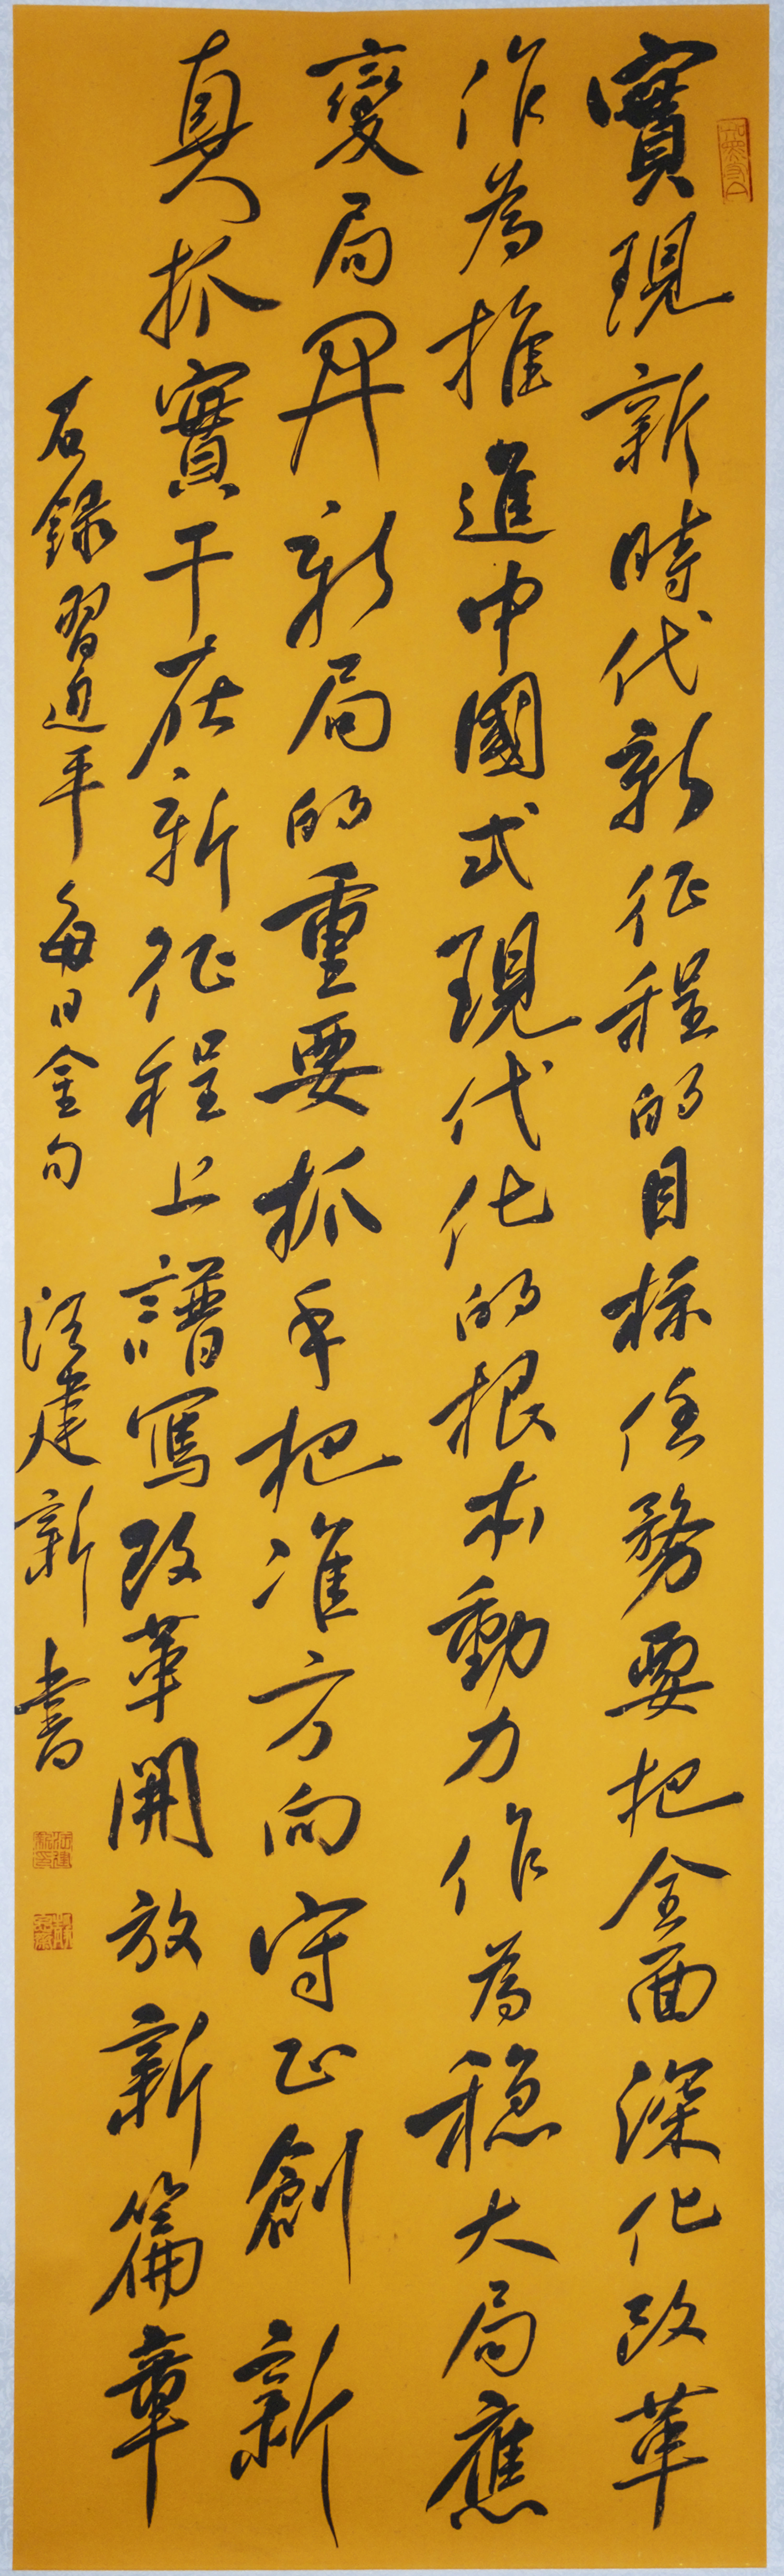 實現新時代新征程的目标任務要把全面深化改革
作為推進中國式現代化的根本動力作為稳大局應
變局開新局的重要抓手把准方向守正創新
真抓實干在新征程上譜寫改革開放新篇章
右録習近平每日金句 汪建新書